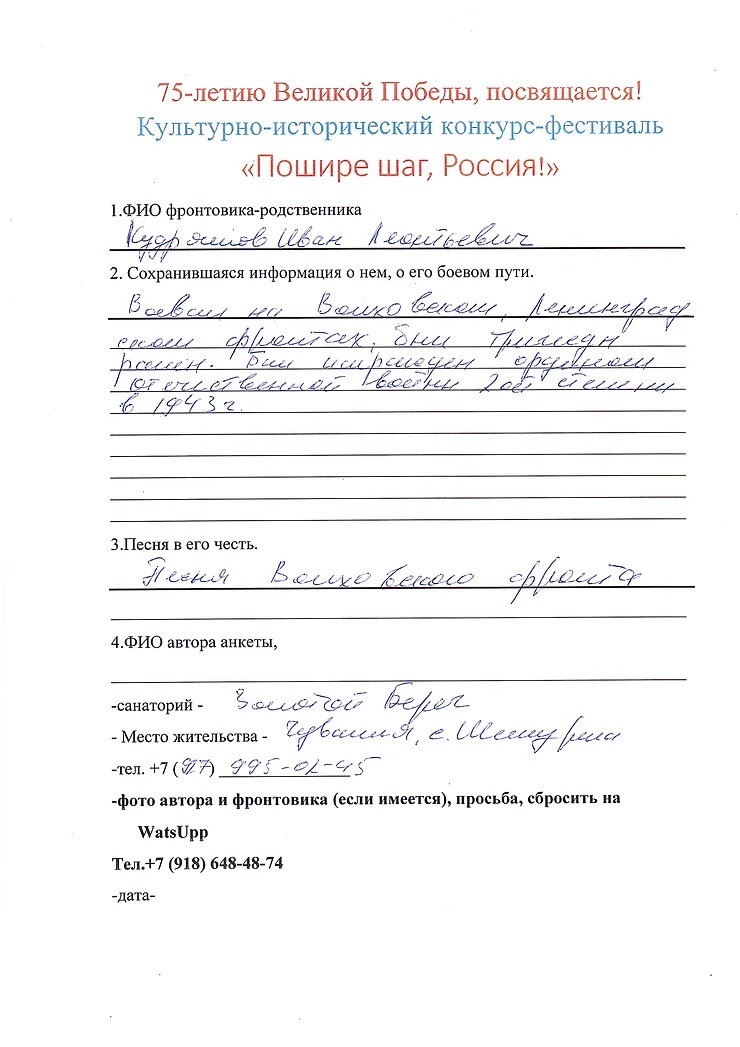 75-летию Великой Победы, посвящается!
Культурно-исторический конкурс-фестиваль
«Пошире шаг, Россия!»
1.ФИО фронтовика-родственника
Кудряшов Иван Леонтьевич
2. Сохранившаяся информация о нем, о его боевом пути.
Воевал на Волховском, Ленинград
ском фронтах, был трижды
ранен. Был награжден орденом
Отечественной войны 2ой степени
в 1943 г.
3.Песня в его честь.
Песня Волховского фронта
4.ФИО автора анкеты,
-санаторий - Золотой Берег
- Место жительства - Чувашия, с.
-тел. +7 (927) 995-02-45
-фото автора и фронтовика (если имеется), просьба, сбросить на
WatsUpp
Тел.+7 (918) 648-48-74
-дата-